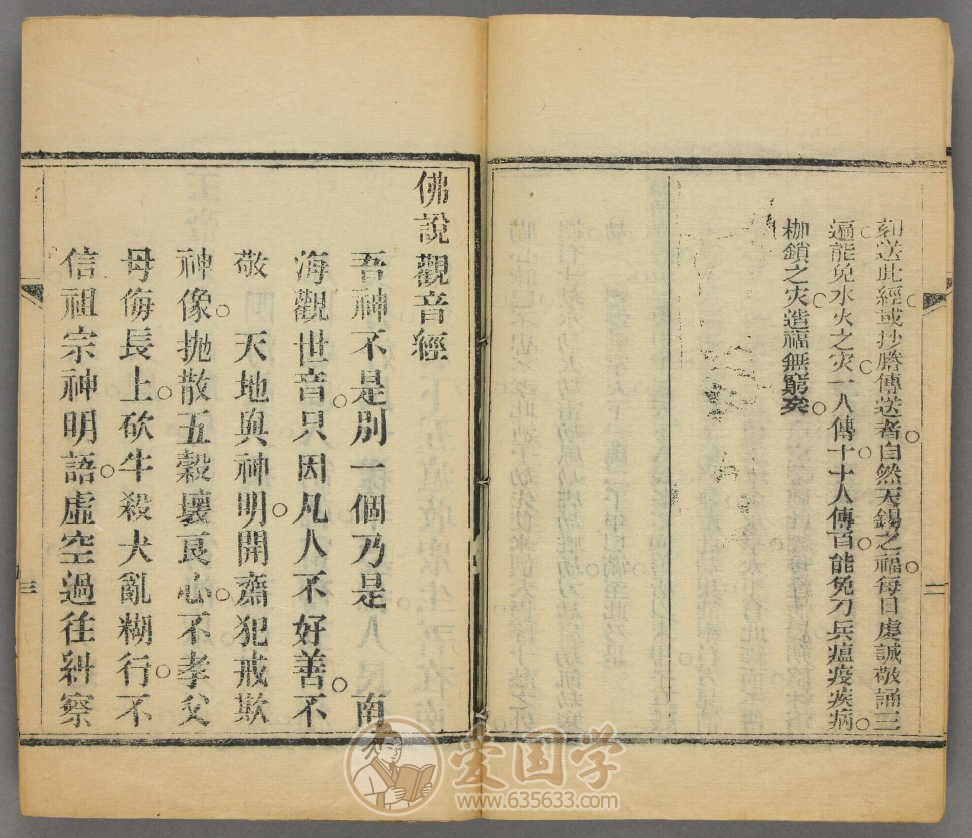 刻送此經或抄謄傳送者自然天錫之福每日虔誠敬誦三
遍能免水火之灾一人傳十十人傳百能免刀兵瘟疫疾病
枷鎖之灾造福無窮矣
二
佛說觀音經
吾神不是別一個乃是 南
海觀世音只因凡人不好善不
敬 天地與神明開齋犯戒欺
神像拋散五穀壞良心不孝父
母侮長上砍牛殺犬亂糊行不
信祖宗神明語虛空過往糾察
三
爱国学
www.635633.com